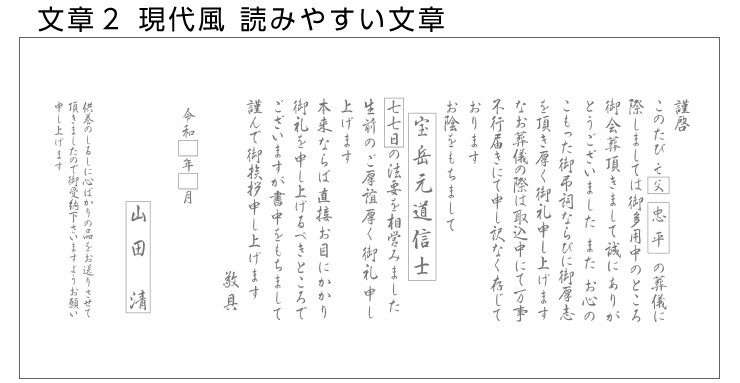 文章２ 現代風 読みやすい文章
謹啓
このたび 亡父 忠平 の葬儀に
際しましては御多用中のところ
御会葬頂きまして誠にありが
とうございました また お心の
こもった御弔詞ならびに御厚志
を頂き厚く御礼申し上げます
なお葬儀の際は取込中にて万事
不行届きにて申し訳なく存じて
おります
お陰をもちまして
宝岳元道信士
七七日の法要を相営みました
生前のご厚誼厚く御礼申し
上げます
本来ならば直接お目にかかり
御礼を申し上げるべきところで
ございますが書中をもちまして
謹んで御挨拶申し上げます
敬具
令和 年 月
山田 清
供養のしるしに心ばかりの品をお送りさせて
頂きましたので御受納下さいますようお願い
申し上げます